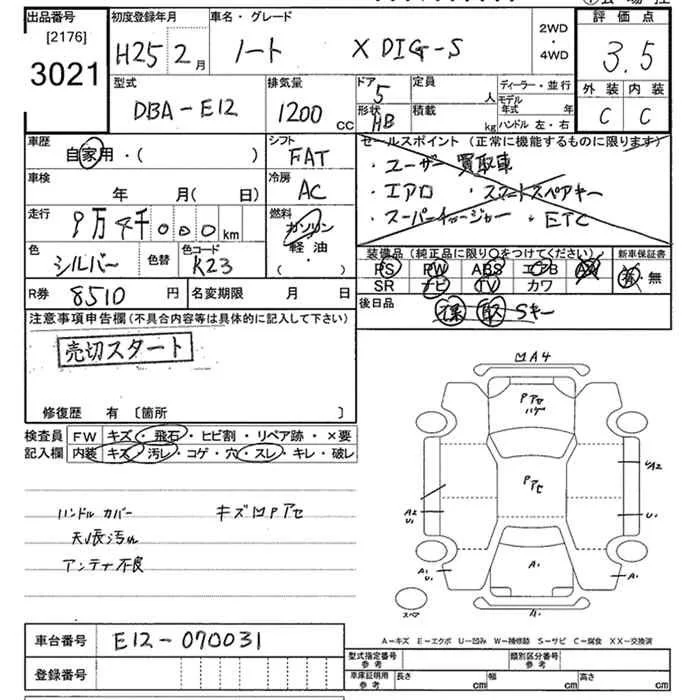 出品番号
[2176]
3021
初度登録年月
H25 2月
車名・グレード
ノート X DIG-S
2WD
・
4WD
評価点
3.5
外装 内装
C C
型式
DBA-E12
排気量
1200 CC
ドア
5
形状
HB
定員
人
積載
kg
ディーラー・並行
モデル
年式 年
ハンドル 左・右
車歴
自家用・( )
シフト
FAT
車検
年 月(日)
冷房
AC
走行
9万4千000km
燃料
ガソリン
軽油
・( )
色
シルバー
色替
色コード
K23
セールスポイント (正常に機能するものに限ります)
・ユーザー買取車
・エアロ ・スマートスペアキー
・スーパーチャージャー ・ETC
装備品(純正品に限り○をつけてください)
PS PW ABS エアB AW
SR ナビ TV カワ
新車保証書
有・無
R券 8510円
名変期限 月 日
後日品
保 取 Sキー
注意事項申告欄(不具合内容等は具体的に記入して下さい)
売切スタート
修復歴 有 〔箇所 〕
検査員
記入欄
FW キズ・飛石・ヒビ割・リペア跡・×要
内装 キズ・汚レ・コゲ・穴・スレ・キレ・破レ
ハンドル カバー キズ凹Pアセ
天張汚れ
アンテナ不良
凹A4
Pアセ
ハゲ
Pアセ
A2
U1
A2
U1
A1
U1
A1
A1
スペア
A-キズ E-エクボ U-凹み W-補修跡 S-サビ C-腐食 XX-交換済
車台番号 E12-070031
登録番号
型式指定番号
参考
類別区分番号
参考
車庫証明用
参考
長さ cm 幅 cm 高さ cm